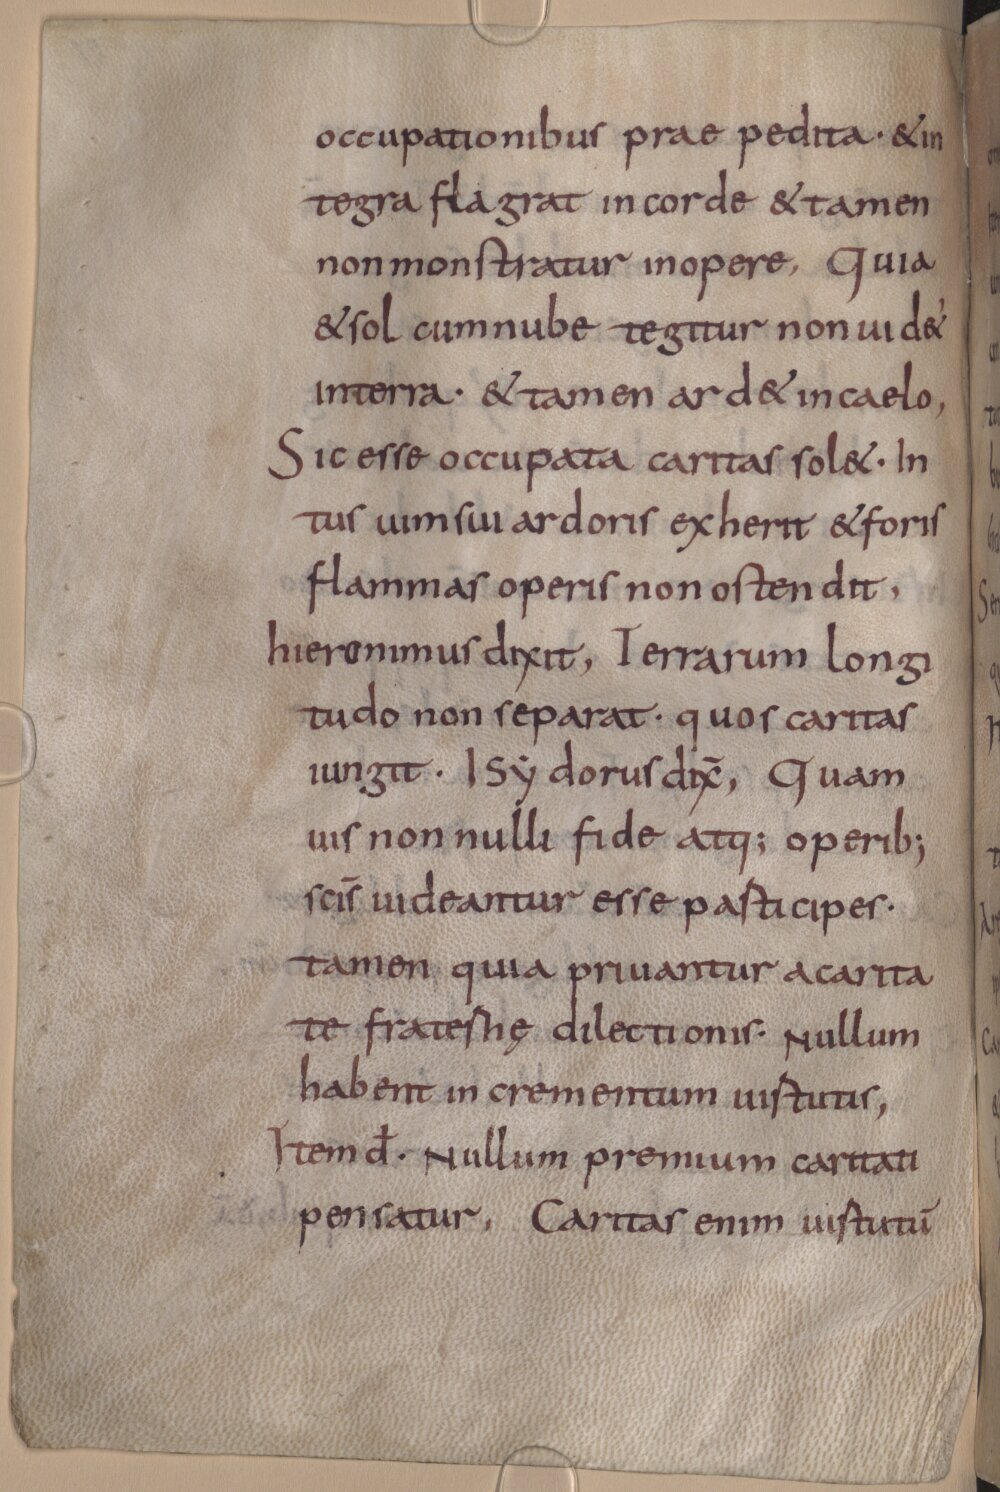 occupationibus prae pedita · & in
tegra flagrat in corde & tamen
non monstratur in opere, Quia
& sol cum nube tegitur non uid&
in terra · & tamen ard& in caelo,
Sic esse occupata caritas sol& · In
tus uim sui ardoris exherit & foris
flammas operis non ostendit,
hieronimus dixit, Terrarum longi
tudo non separat · quos caritas
iungit · Isẏdorus dix̄, Quam
uis non nulli fide atq; operib;
scīs uideantur esse participes ·
tamen quia priuantur a carita
te fraternę dilectionis · Nullum
habent in crementum uirtutis,
Item đ · Nullum premium caritati
pensatur, Caritas enim uirtutū